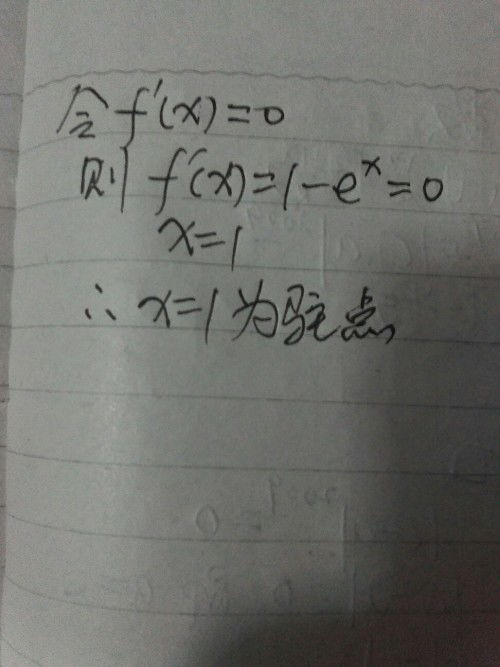 令f'(x)=0
则f'(x)=1-eˣ=0
x=1
∴x=1为驻点